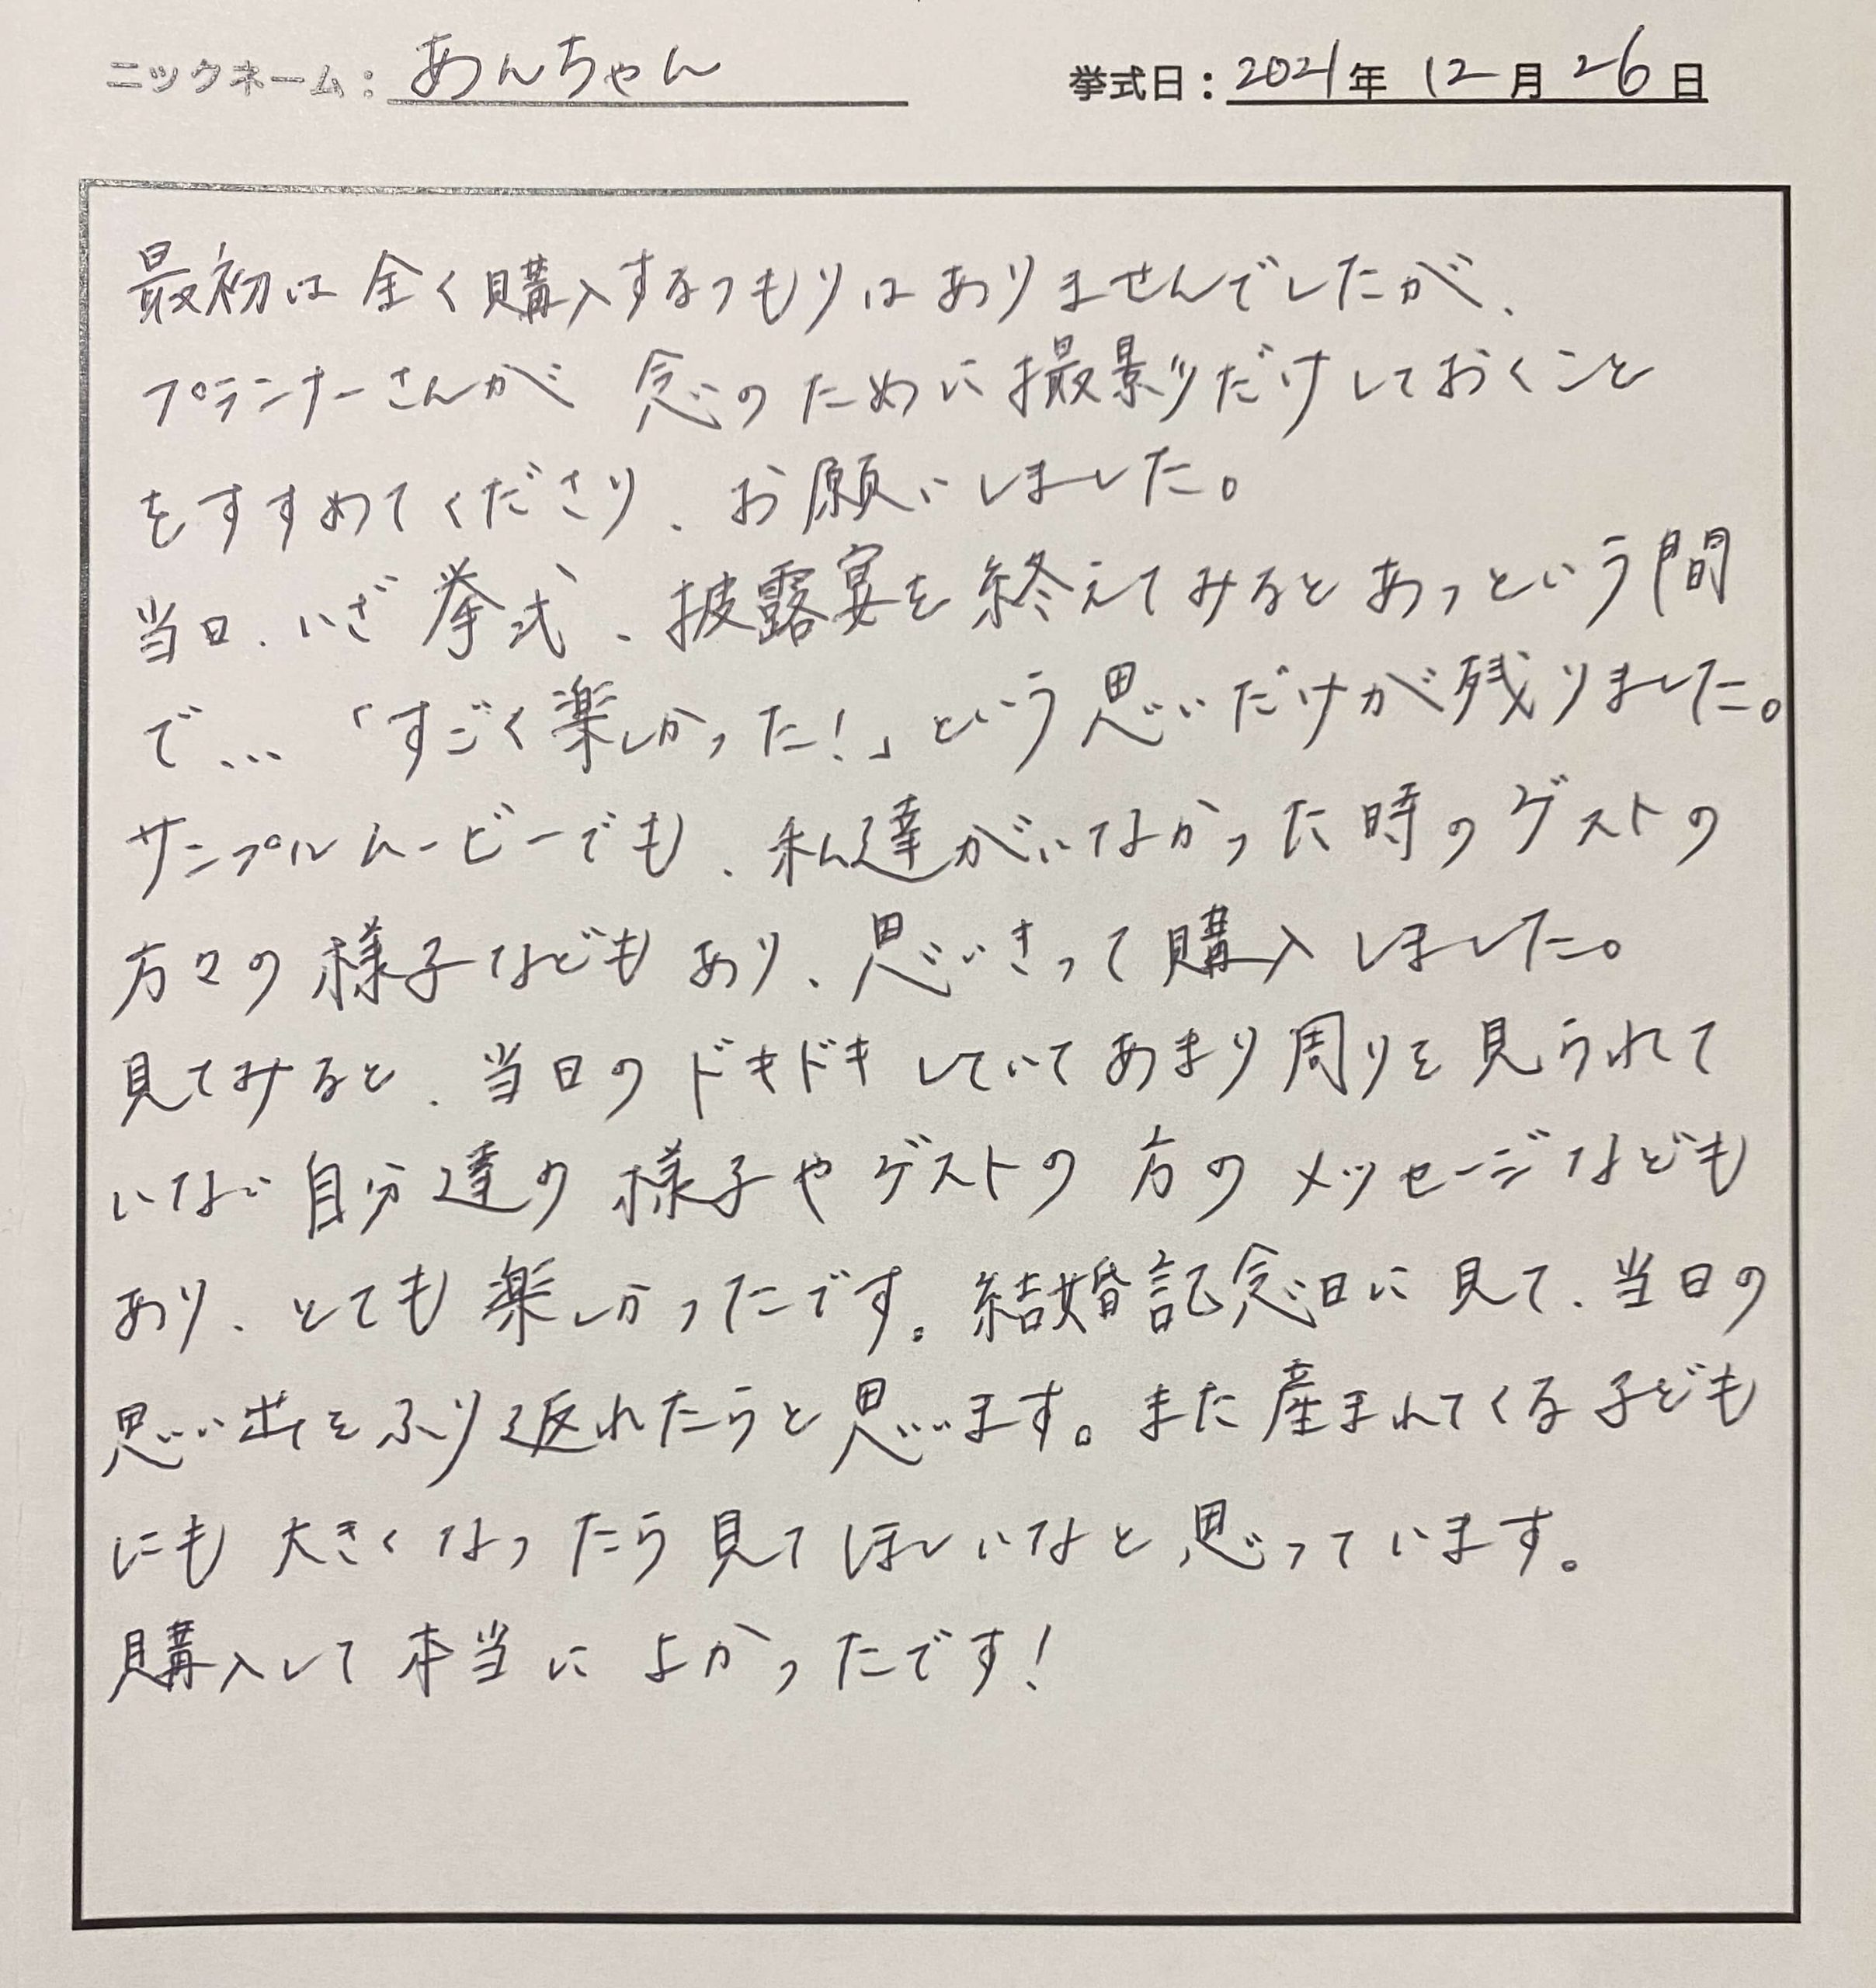 ニックネーム：あんちゃん 挙式日：2021年 12月 26日
最初は全く購入するつもりはありませんでしたが、
プランナーさんが 念のために撮影だけしておくこと
をすすめてくださり、お願いしました。
当日、いざ挙式、披露宴を終えてみるとあっという間
で…「すごく楽しかった！」という思いだけが残りました。
サンプルムービーでも、私達がいなかった時のゲストの
方々の様子などもあり、思いきって購入しました。
見てみると、当日のドキドキしていてあまり周りを見られて
いない自分達の様子やゲストの方のメッセージなども
あり、とても楽しかったです。結婚記念日に見て、当日の
思い出をふり返れたらと思います。また産まれてくる子ども
にも大きくなったら見てほしいなと思っています。
購入して本当によかったです！